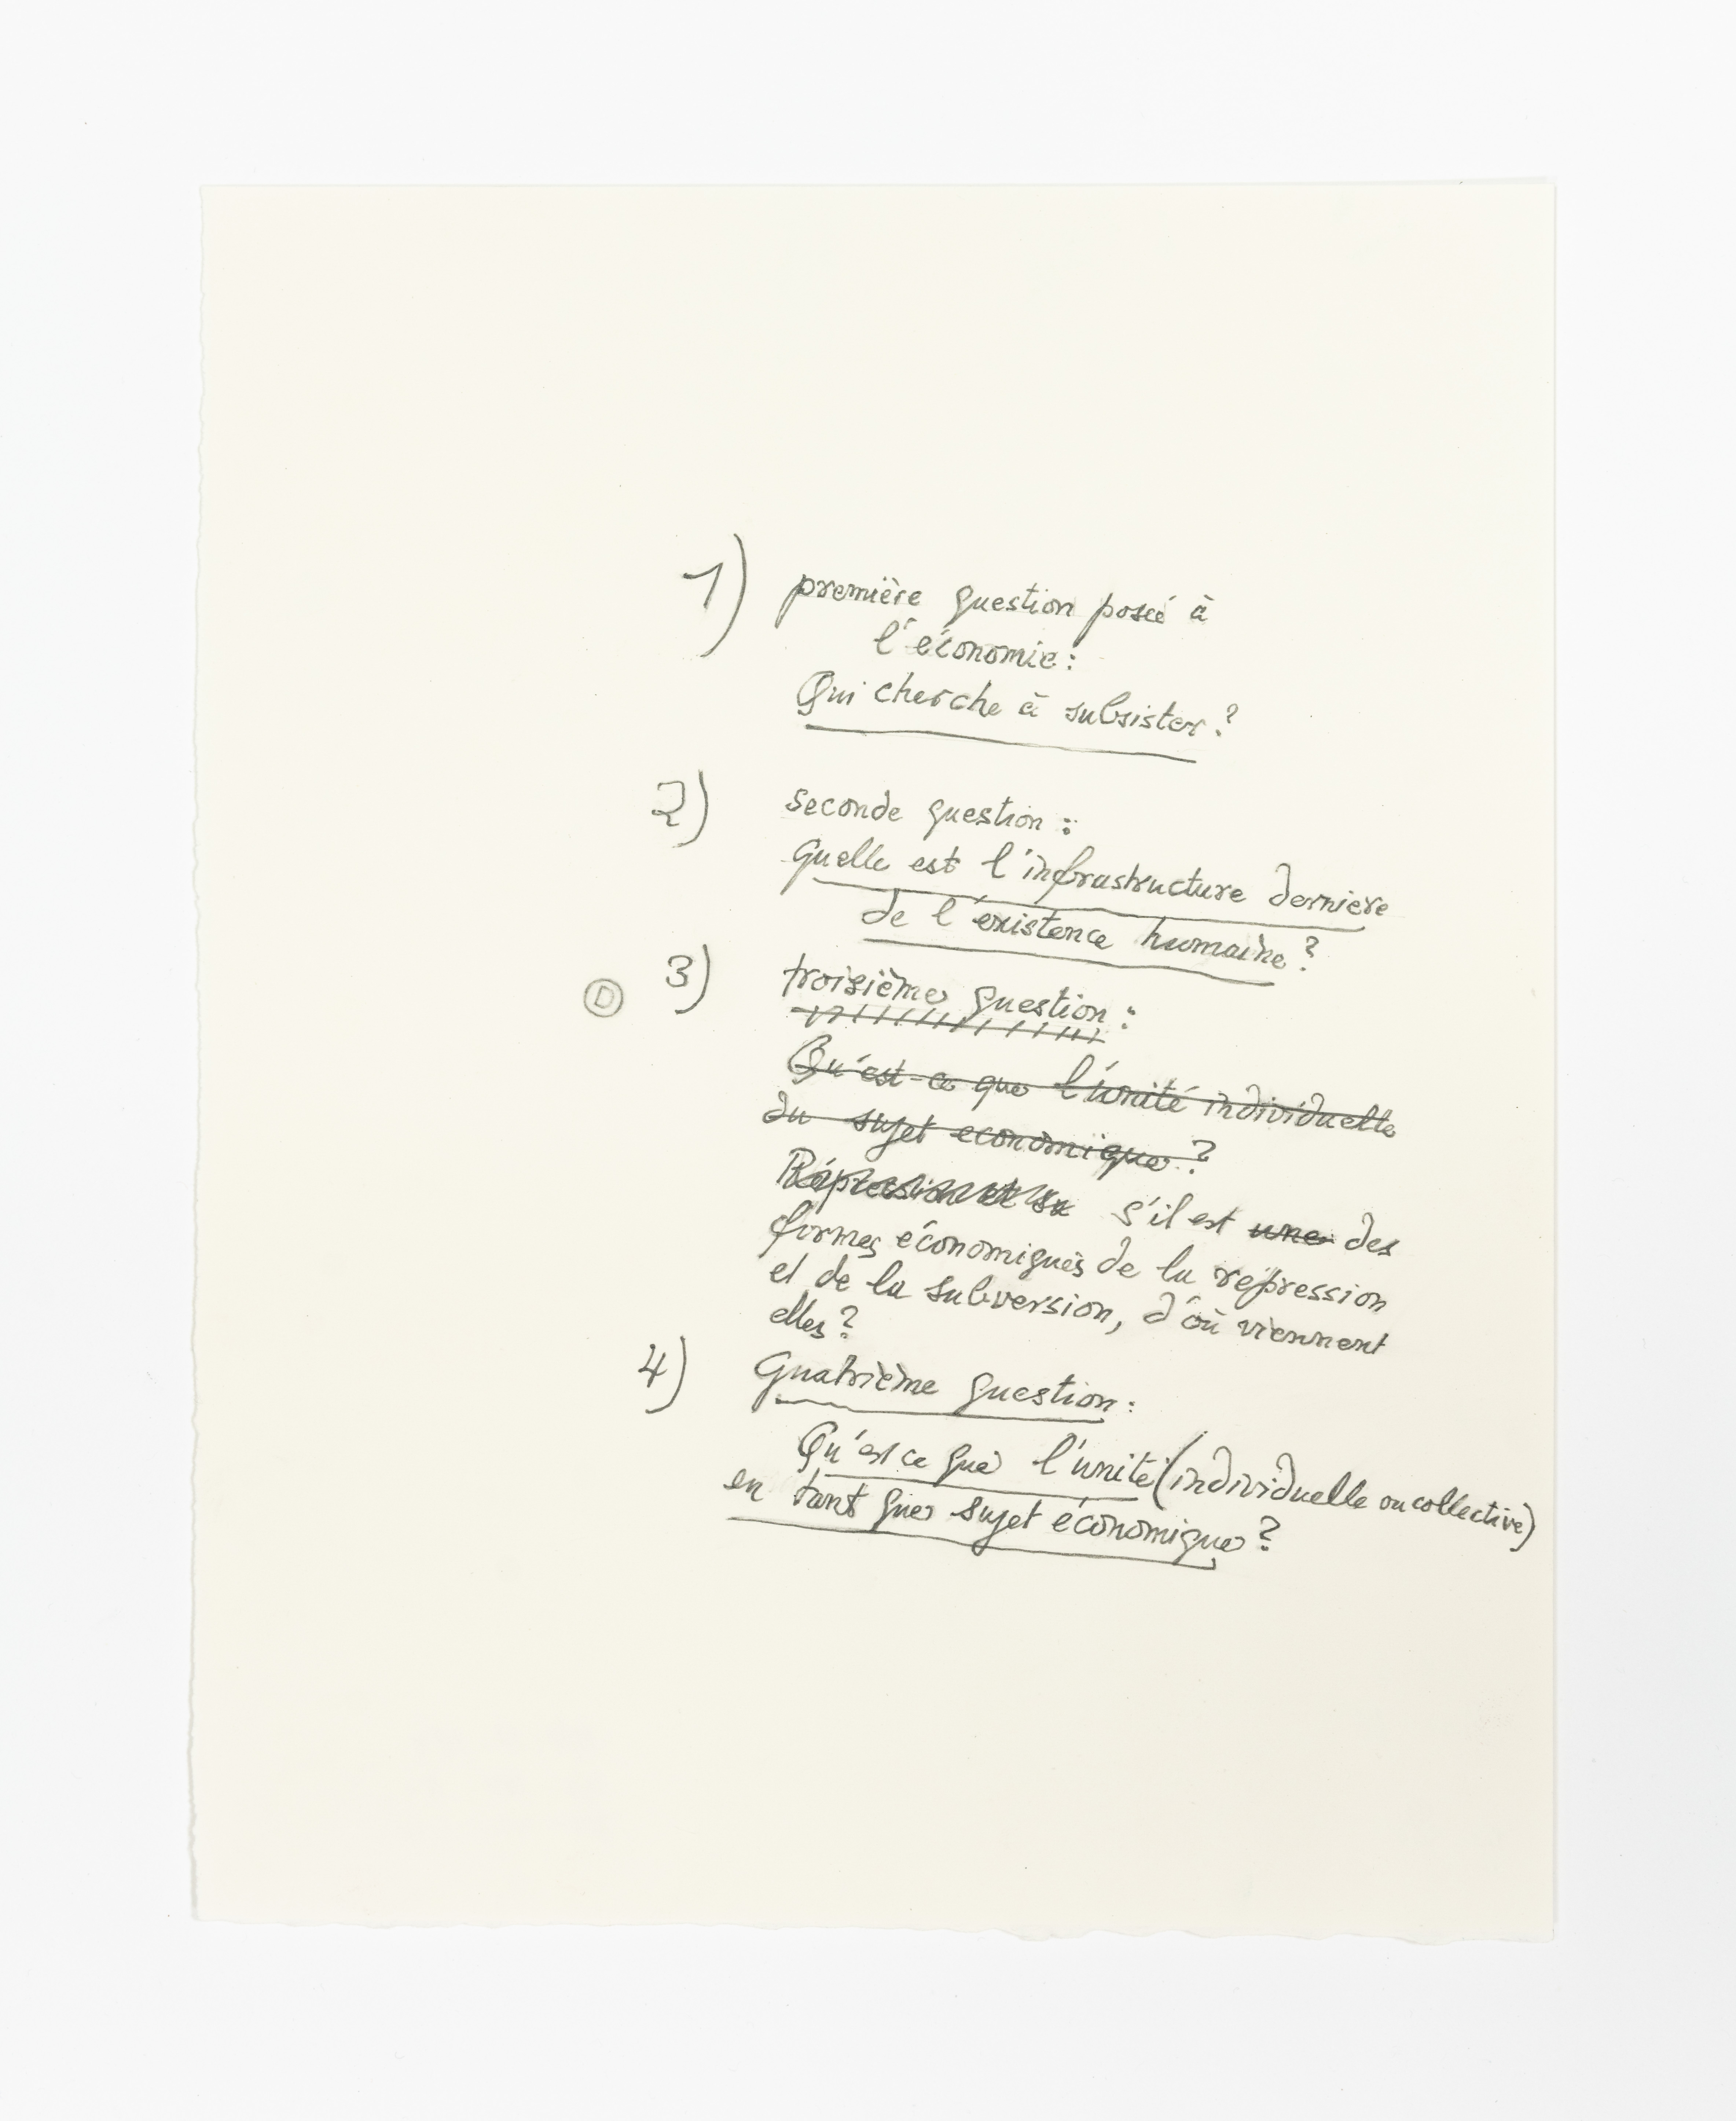 1) première question poseé à
l'économie:
Qui cherche à subsister?
2) seconde question:
quelle est l'infrastructure derniere
de l'existence humaine?
D 3) troisième question:
Qu'est-ce que l'unité individuelle
du sujet economique?
Répression et su s'il est une des
formes économiques de la répression
et de la subversion, d'où viennent
elles?
4) Quatrième question:
Qu'est ce que l'unité (individuelle ou collective)
en tant que sujet économique?